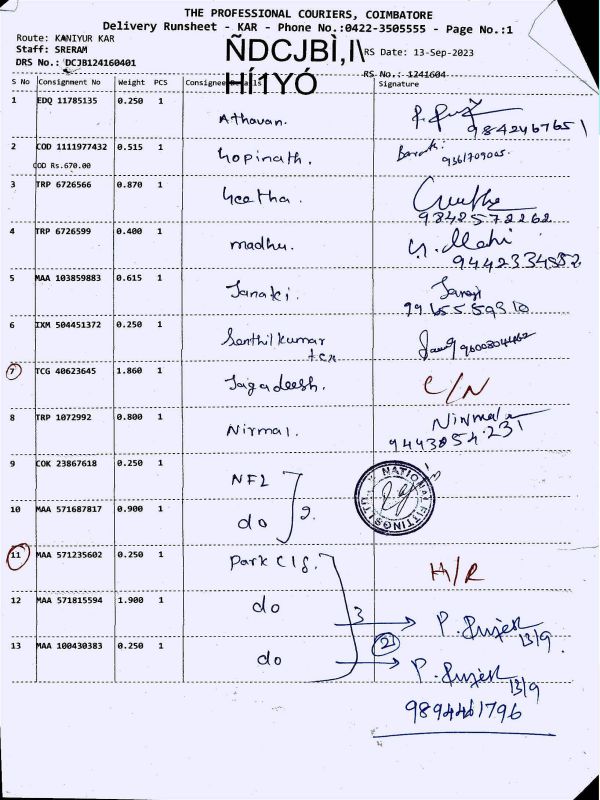 THE PROFESSIONAL COURIERS, COIMBATORE
Delivery Runsheet - KAR - Phone No.:0422-3505555 - Page No.:1
Route: KANIYUR KAR
Staff: SRERAM
DRS No.: DCJB124160401
ÑDCJBÌ,I\
HÍ1YÓ
RS Date: 13-Sep-2023
RS No.: 1241604
S No Consignment No Weight PCS Consignee Details Signature
1 EDQ 11785135 0.250 1 Athavan. 9842467651
2 COD 1111977432 0.515 1 Gopinath.
COD Rs.670.00
3 TRP 6726566 0.870 1 Geetha. Geetha
9842572262
4 TRP 6726599 0.400 1 madhu.
9442334882
5 MAA 103859883 0.615 1 Janaki.
6 IXM 504451372 0.250 1 Senthil kumar
7 TCG 40623645 1.860 1 Jagadeesh. C/N
8 TRP 1072992 0.800 1 Nirmal. Nirmal
9443054231
9 COK 23867618 0.250 1 NFL
10 MAA 571687817 0.900 1 do 2. NATIONAL FITTINGS
11 MAA 571235602 0.250 1 Park Clg. H/R
12 MAA 571815594 1.900 1 do 3 P. 13/9
2
13 MAA 100430383 0.250 1 do P. 13/9
9894461796